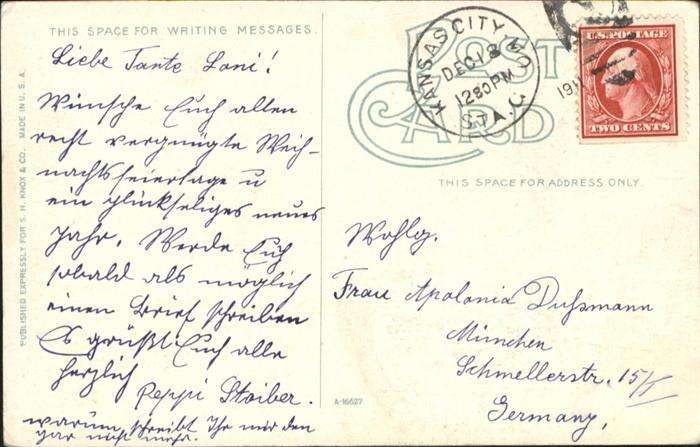 THIS SPACE FOR WRITING MESSAGES.
Liebe Tante Loni!
Wünsche Euch allen
recht vergnügte Weih-
nachtsfeiertage u
ein glückseliges neues
Jahr. Werde Euch
sobald als möglich
einen Brief schreiben
Es grüßt Euch alle
herzlich Peppi Stoiber.
warum schreibt Ihr mir den
gar nicht mehr.
PUBLISHED EXPRESSLY FOR S. H. KNOX & CO. MADE IN U. S. A.
POST CARD
KANSAS CITY, MO.
DEC 18
12 30 PM
STA. C
1911
U.S. POSTAGE
TWO CENTS
THIS SPACE FOR ADDRESS ONLY.
Wohlg.
Frau Apolonia Dußmann
München
Schmellerstr. 15/
Germany,
A-16627